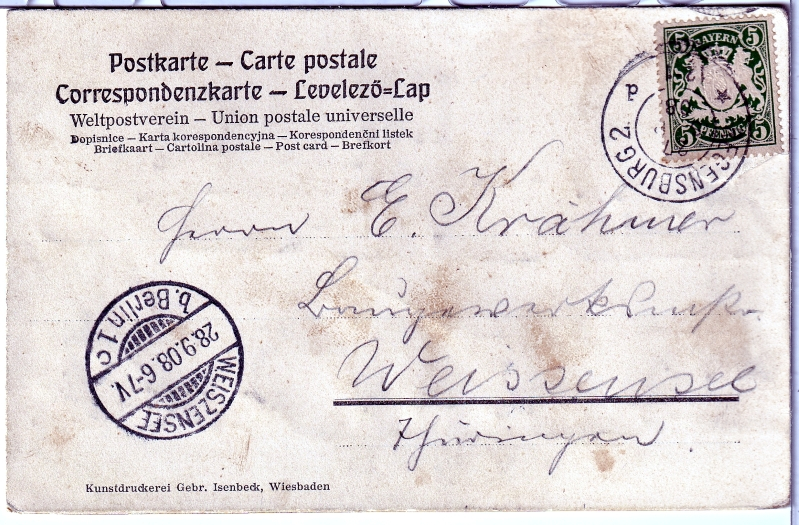 Postkarte – Carte postale
Correspondenzkarte – Levelező=Lap
Weltpostverein – Union postale universelle
Dopisnice – Karta korespondencyjna – Korespondenční listek
Briefkaart – Cartolina postale – Post card – Brefkort
5 BAYERN 5
5 PFENNIG 5
REGENSBURG 2
P
Herrn E. Krähmer
Weissensee
Thüringen
b. Berlin 1 c
28.9.08. 6-7 V.
WEISZENSEE
Kunstdruckerei Gebr. Isenbeck, Wiesbaden